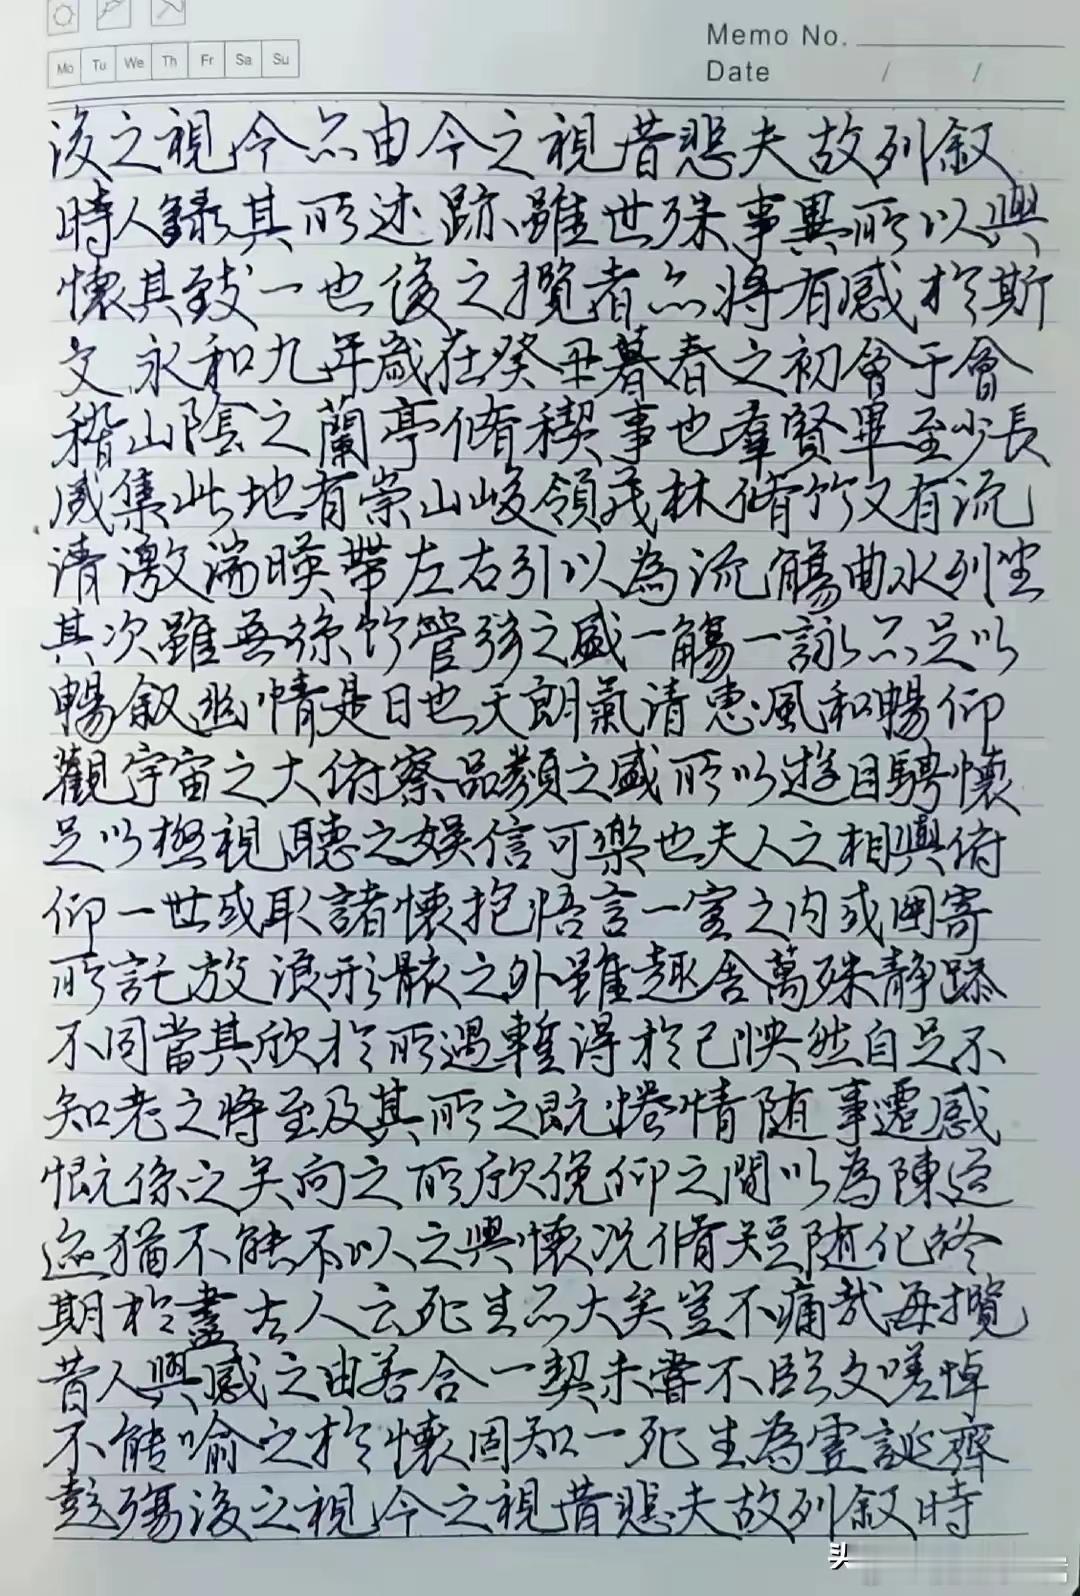 Memo No.
Mo Tu We Th Fr Sa Su
Date / /
後之視今亦由今之視昔悲夫故列叙
時人錄其所述跡雖世殊事異所以興
懷其致一也後之攬者亦將有感於斯
文永和九年歲在癸丑暮春之初會于會
稽山陰之蘭亭脩稧事也羣賢畢至少長
咸集此地有崇山峻領茂林脩竹又有流
清激湍暎帶左右引以為流觴曲水列坐
其次雖無絲竹管弦之盛一觴一詠亦足以
暢叙幽情是日也天朗氣清惠風和暢仰
觀宇宙之大俯察品類之盛所以遊目騁懷
足以極視聽之娛信可樂也夫人之相與俯
仰一世或取諸懷抱悟言一室之內或因寄
所託放浪形骸之外雖趣舍萬殊静躁
不同當其欣於所遇暫得於己怏然自足不
知老之將至及其所之既惓情随事遷感
慨係之矣向之所欣俛仰之間以為陳迹
猶不能不以之興懷况脩短随化終
期於盡古人云死生亦大矣豈不痛哉每攬
昔人興感之由若合一契未嘗不臨文嗟悼
不能喻之於懷固知一死生為虛誕齊
彭殤後之視今之視昔悲夫故列叙時
头